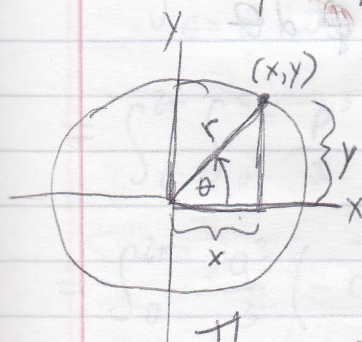 y
(x,y)
r
y
θ
x
x